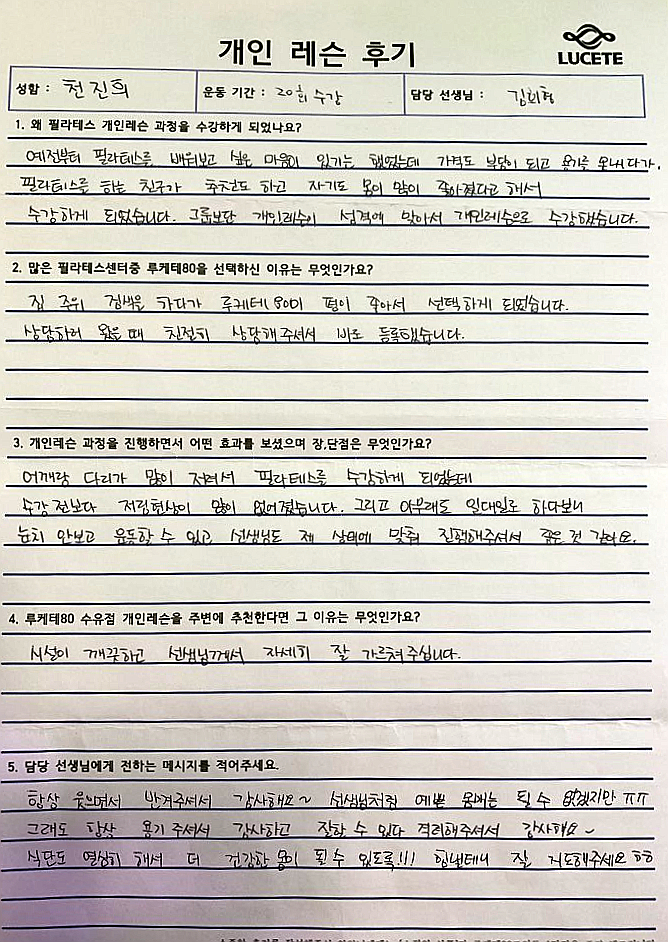 개인 레슨 후기
LUCETE
성함 : 천진희 운동 기간 : 20회 수강 담당 선생님 : 김희형
1. 왜 필라테스 개인레슨 과정을 수강하게 되었나요?
예전부터 필라테스를 배워보고 싶은 마음이 있기는 했었는데 가격도 부담이 되고 용기를 못내다가.
필라테스를 하는 친구가 추천도 하고 자기도 몸이 많이 좋아졌다고 해서
수강하게 되었습니다. 그룹보단 개인레슨이 성격에 맞아서 개인레슨으로 수강했습니다.
2. 많은 필라테스센터중 루케테80을 선택하신 이유는 무엇인가요?
집 주위 검색을 하다가 루케테80이 평이 좋아서 선택하게 되었습니다.
상담하러 왔을 때 친절히 상담해주셔서 바로 등록했습니다.
3. 개인레슨 과정을 진행하면서 어떤 효과를 보셨으며 장,단점은 무엇인가요?
어깨랑 다리가 많이 저려서 필라테스를 수강하게 되었는데
수강 전보다 저림현상이 많이 없어졌습니다. 그리고 아무래도 일대일로 하다보니
눈치 안보고 운동할 수 있고 선생님도 제 상태에 맞춰 진행해주셔서 좋은 것 같아요.
4. 루케테80 수유점 개인레슨을 주변에 추천한다면 그 이유는 무엇인가요?
시설이 깨끗하고 선생님께서 자세히 잘 가르쳐주십니다.
5. 담당 선생님에게 전하는 메시지를 적어주세요.
항상 웃으면서 반겨주셔서 감사해요~ 선생님처럼 예쁜 몸매는 될 수 없겠지만 ㅠㅠ
그래도 항상 용기 주셔서 감사하고 잘할 수 있다 격려해주셔서 감사해요~
식단도 열심히 해서 더 건강한 몸이 될 수 있도록!!! 힘낼테니 잘 지도해주세요 ㅎㅎ